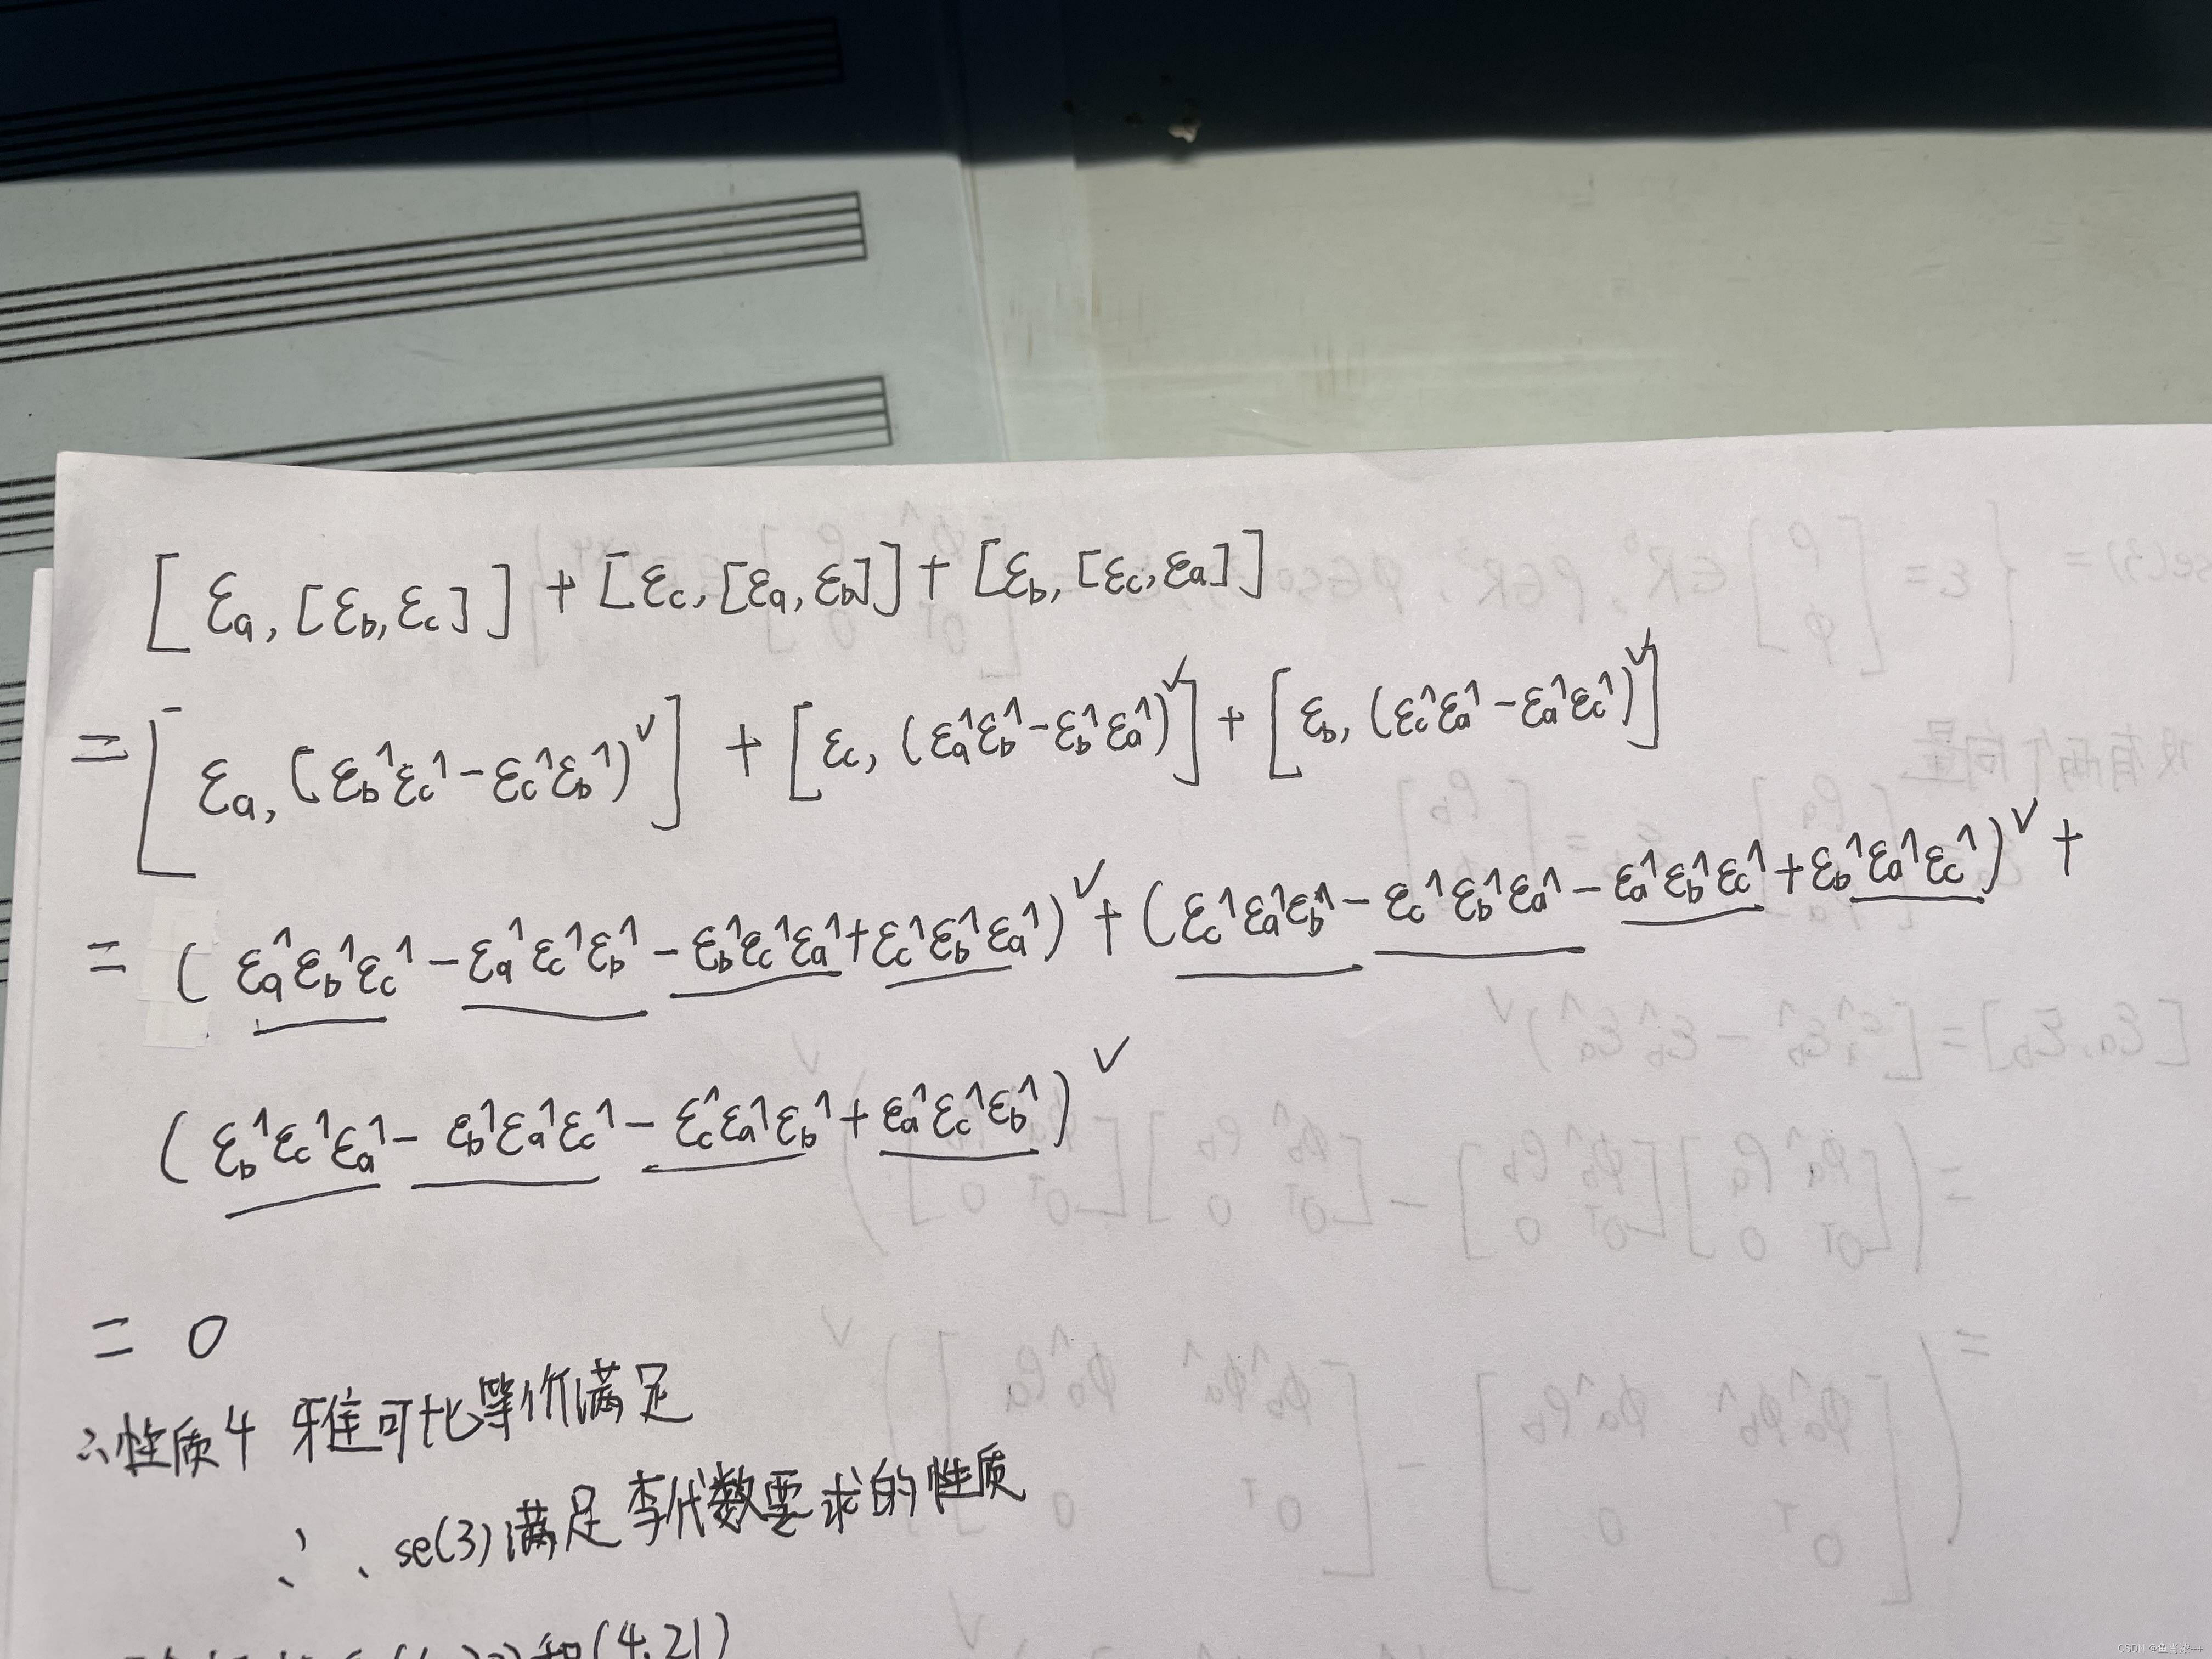 [εa, [εb, εc]] + [εc, [εa, εb]] + [εb, [εc, εa]]
= [εa, (εb^εc^ - εc^εb^)∨] + [εc, (εa^εb^ - εb^εa^)∨] + [εb, (εc^εa^ - εa^εc^)∨]
= (εa^εb^εc^ - εa^εc^εb^ - εb^εc^εa^ + εc^εb^εa^)∨ + (εc^εa^εb^ - εc^εb^εa^ - εa^εb^εc^ + εb^εa^εc^)∨ +
(εb^εc^εa^ - εb^εa^εc^ - εc^εa^εb^ + εa^εc^εb^)∨
= 0
∴性质4 雅可比等价满足
∴ se(3)满足李代数要求的性质
和(4.21)
CSDN @鱼肖浓++